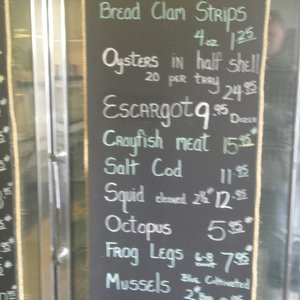 Bread Clam Strips
4oz 1.25
Oysters in half shell
20 per tray 24.95
Escargot 9.95 Dozen
Crayfish meat 15.95*
Salt Cod 11.95
Squid cleaned 2½* 12.95
Octopus 5.95*
Frog Legs 6-8 7.95*
Mussels Blue Cultivated
2